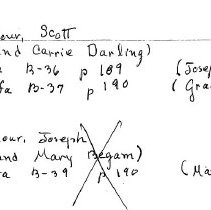 our, Scott
and Carrie Darling)
a B-36 p 189 (Josep
fa B-37 p 190 (Gra
our, Joseph
and Mary Begam)
ra B-39 p 190 (Ma